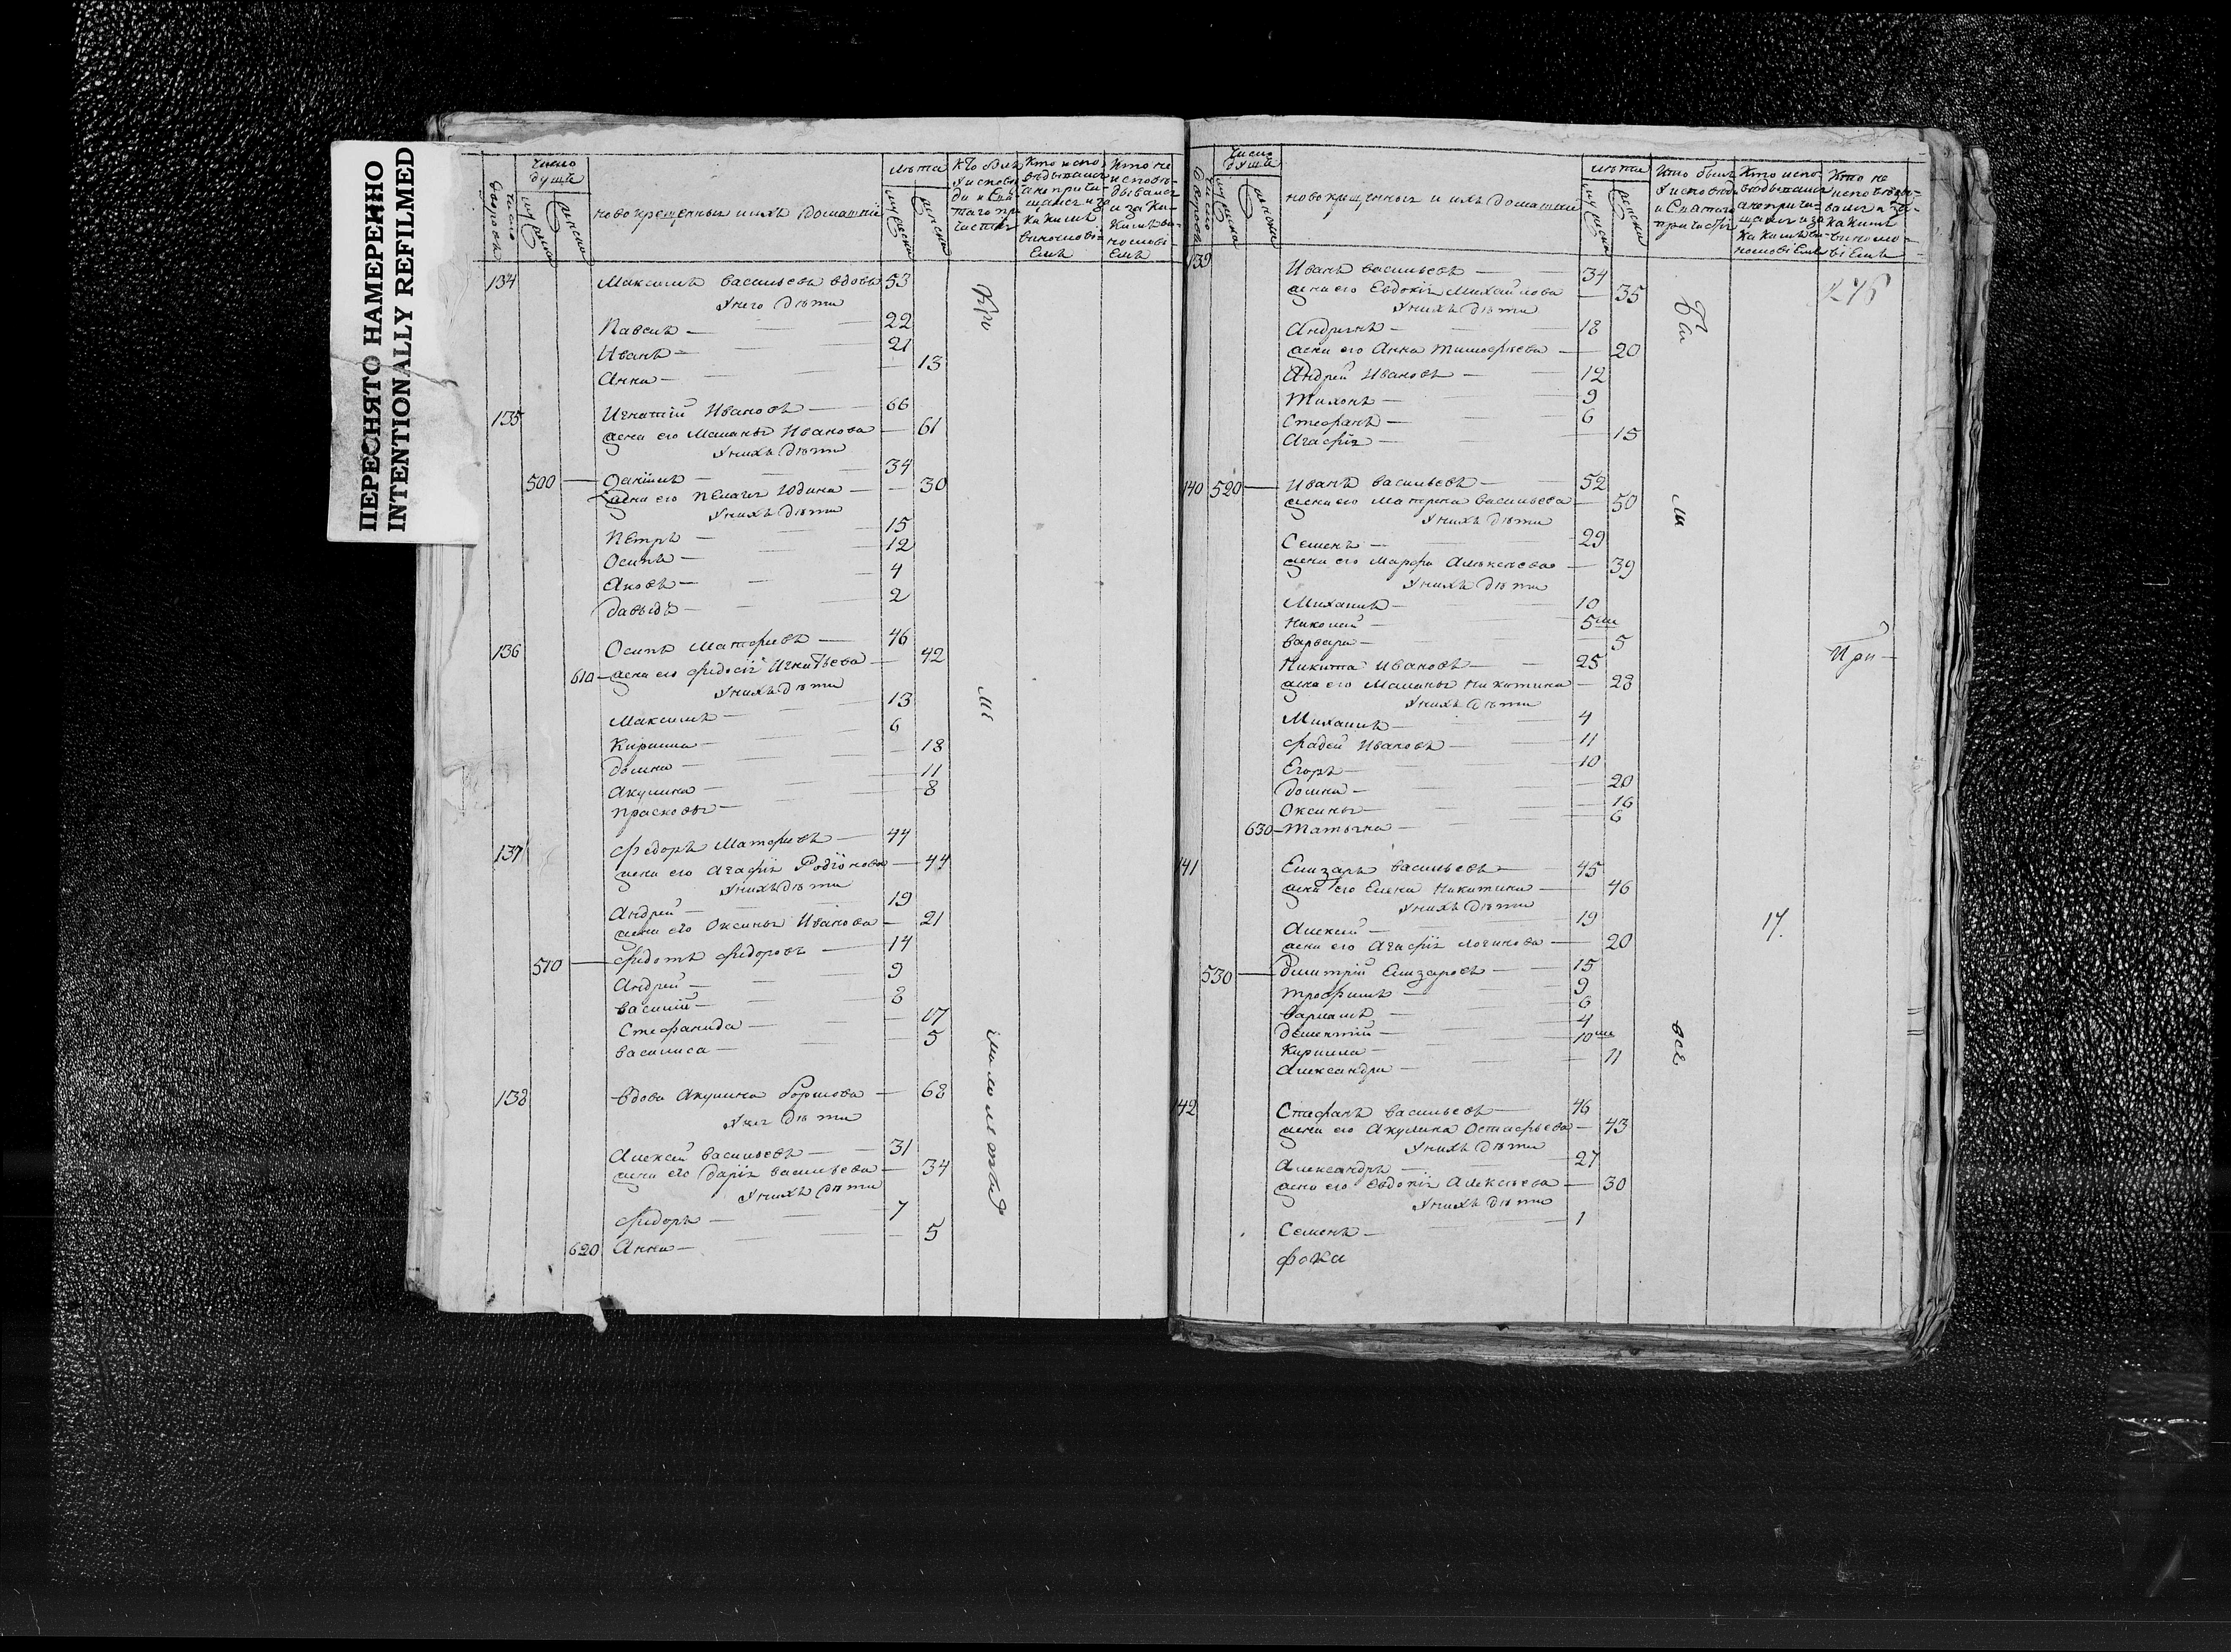 ПЕРЕСНЯТО НАМЕРЕННО
INTENTIONALLY REFILMED
число душъ
лѣта
число дворовъ
мужеска
женска
новокрещенныя и ихъ домашніе
мужеска
женска
Кто былъ у исповеди и Святаго причастія
Кто исповѣдывался а не причащался и за какимъ винословіемъ
Кто не исповѣдывался и за какимъ винословіемъ
134 Максимъ васильевъ вдовъ 53
У него дѣти
Павелъ — 22
Иванъ — 21
Анна — 13
135 Игнатій Ивановъ — 66
жена его Маланья Иванова — 61
У нихъ дѣти
500 — Іоакимъ — 34
жена его Пелагея Юдина — 30
У нихъ дѣти
Петръ — 15
Осипъ — 12
Яковъ — 4
Давыдъ — 2
136 Осипъ Матфиевъ — 46
610 — жена его Федосія Игнатьева — 42
У нихъ дѣти
Максимъ — 13
Кирилла — 6
Домна — 18
Акулина — 11
Прасковья — 8
137 Федоръ Матфиевъ — 44
жена его Агафія Родіонова — 44
У нихъ дѣти
Андрей — 19
жена его Оксинья Иванова — 21
510 — Федотъ Федоровъ — 14
Андрей — 9
Василій — 8
Стефанида — 17
Василиса — 5
138 вдова Акулина — 68
У нея дѣти
Алексей васильевъ — 31
жена его Дарія васильева — 34
У нихъ дѣти
Федоръ — 7
620 Анна — 5
число душъ
лѣта
число дворовъ
мужеска
женска
новокрещенныя и ихъ домашніе
мужеска
женска
Кто былъ у исповеди и Святаго причастія
Кто исповѣдывался а не причащался и за какимъ винословіемъ
Кто не исповѣдывался и за какимъ винословіемъ
276
139 Иванъ васильевъ — 34
жена его Евдокія Михайлова — 35
У нихъ дѣти
Андреянъ — 18
жена его Анна Тимофѣева — 20
Андрей Ивановъ — 12
Тихонъ — 9
Стефанъ — 6
Агафія — 15
140 520 — Иванъ васильевъ — 52
жена его Матрена васильева — 50
У нихъ дѣти
Семенъ — 29
жена его Марфа Алексѣева — 39
У нихъ дѣти
Михаилъ — 10
Николай — 5
Варвара — 5
Никита Ивановъ — 25
жена его Маланья Никитина — 28
У нихъ дѣти
Михаилъ — 4
Фадей Ивановъ — 11
Егоръ — 10
Домна — 20
Оксинья — 16
630 — Татьяна — 6
141 Елизаръ васильевъ — 45
жена его Елена Никитина — 46
У нихъ дѣти
Алексей — 19
жена его Агафія Логинова — 20
17.
530 — Дмитрій Елизаровъ — 15
Трофимъ — 9
Варламъ — 6
Дементій — 4
Кирилла — 10
Александра — 11
142 Стефанъ васильевъ — 46
жена его Акулина Остафьева — 43
У нихъ дѣти
Александръ — 27
жена его Евдокія Алексѣева — 30
У нихъ дѣти
Семенъ — 1
Фока